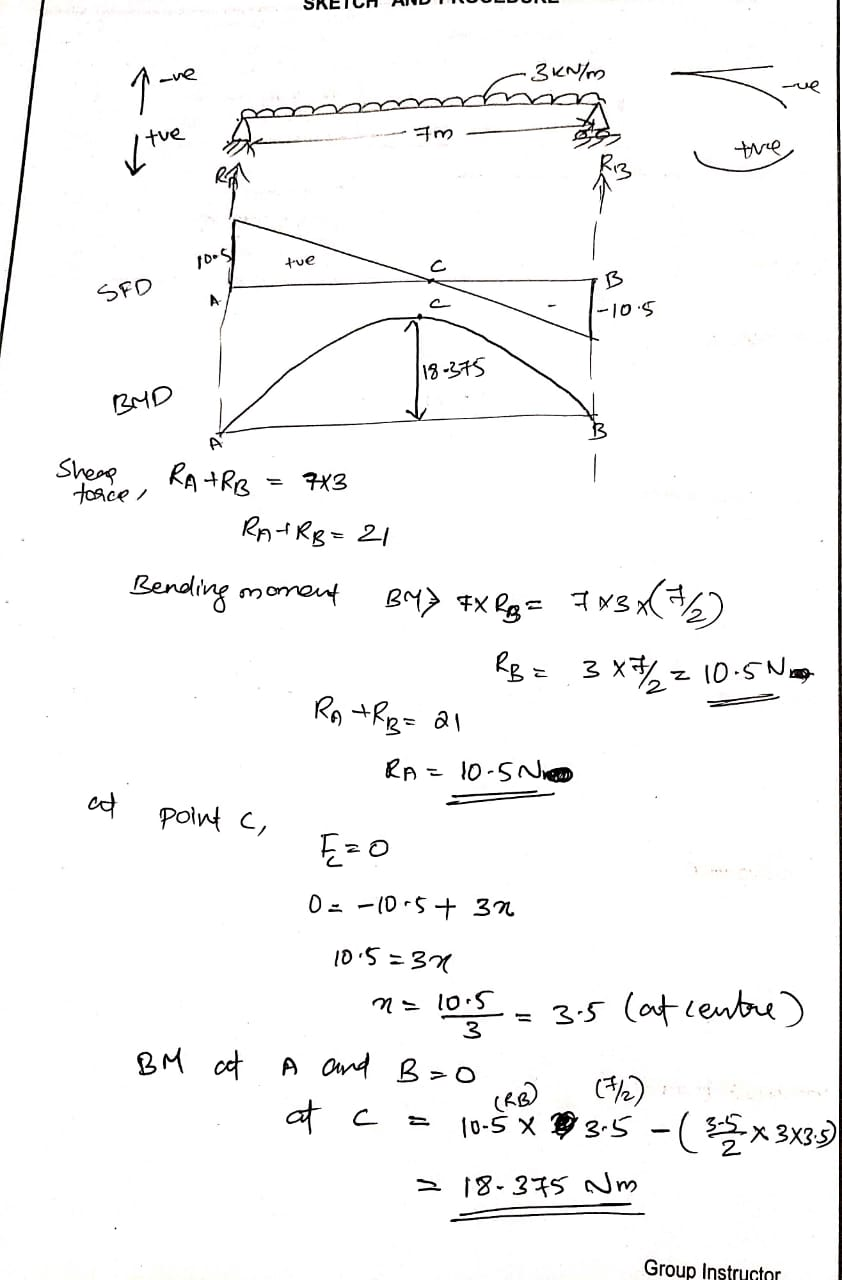 SKETCH AND PROCEDURE
↑ -ve
↓ +ve
3 KN/m
-ve
+ve
7m
RA
RB
SFD
10.5
+ve
C
A
B
-
-10.5
BMD
C
18.375
A
B
Shear force, RA + RB = 7x3
RA + RB = 21
Bending moment BM> 7 x RB = 7 x 3 x (7/2)
RB = 3 x 7/2 = 10.5 N
RA + RB = 21
RA = 10.5 N
at point C,
Fc = 0
0 = -10.5 + 3x
10.5 = 3x
x = 10.5/3 = 3.5 (at centre)
BM at A and B = 0
(RB) (7/2)
at C = 10.5 x 3.5 - (3.5/2 x 3x3.5)
= 18.375 Nm
Group Instructor